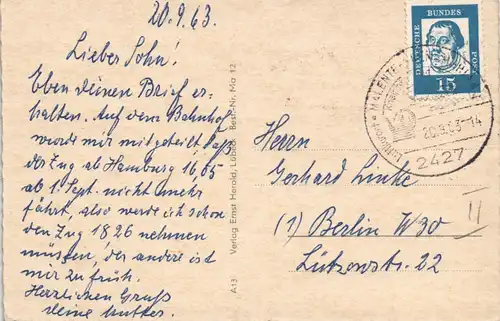 20.9.63.
Lieber Sohn!
Eben deinen Brief er-
halten. Auf dem Bahnhof
wurde mir mitgeteilt daß
der Zug ab Hamburg 16,05
ab 1. Sept. nicht mehr
fährt, also werde ich schon
den Zug 1826 nehmen
müssen, der andere ist
mir zu früh.
Herzlichen Gruß
deine Mutter.
A13 Verlag Ernst Herold, Lübeck Best.-Nr. Ma 12
DEUTSCHE BUNDES POST
15
MALENTE
Luftkurort
20.9.63-14
2427
Herrn
Gerhard Linke
(1) Berlin W30
Lützowstr. 22